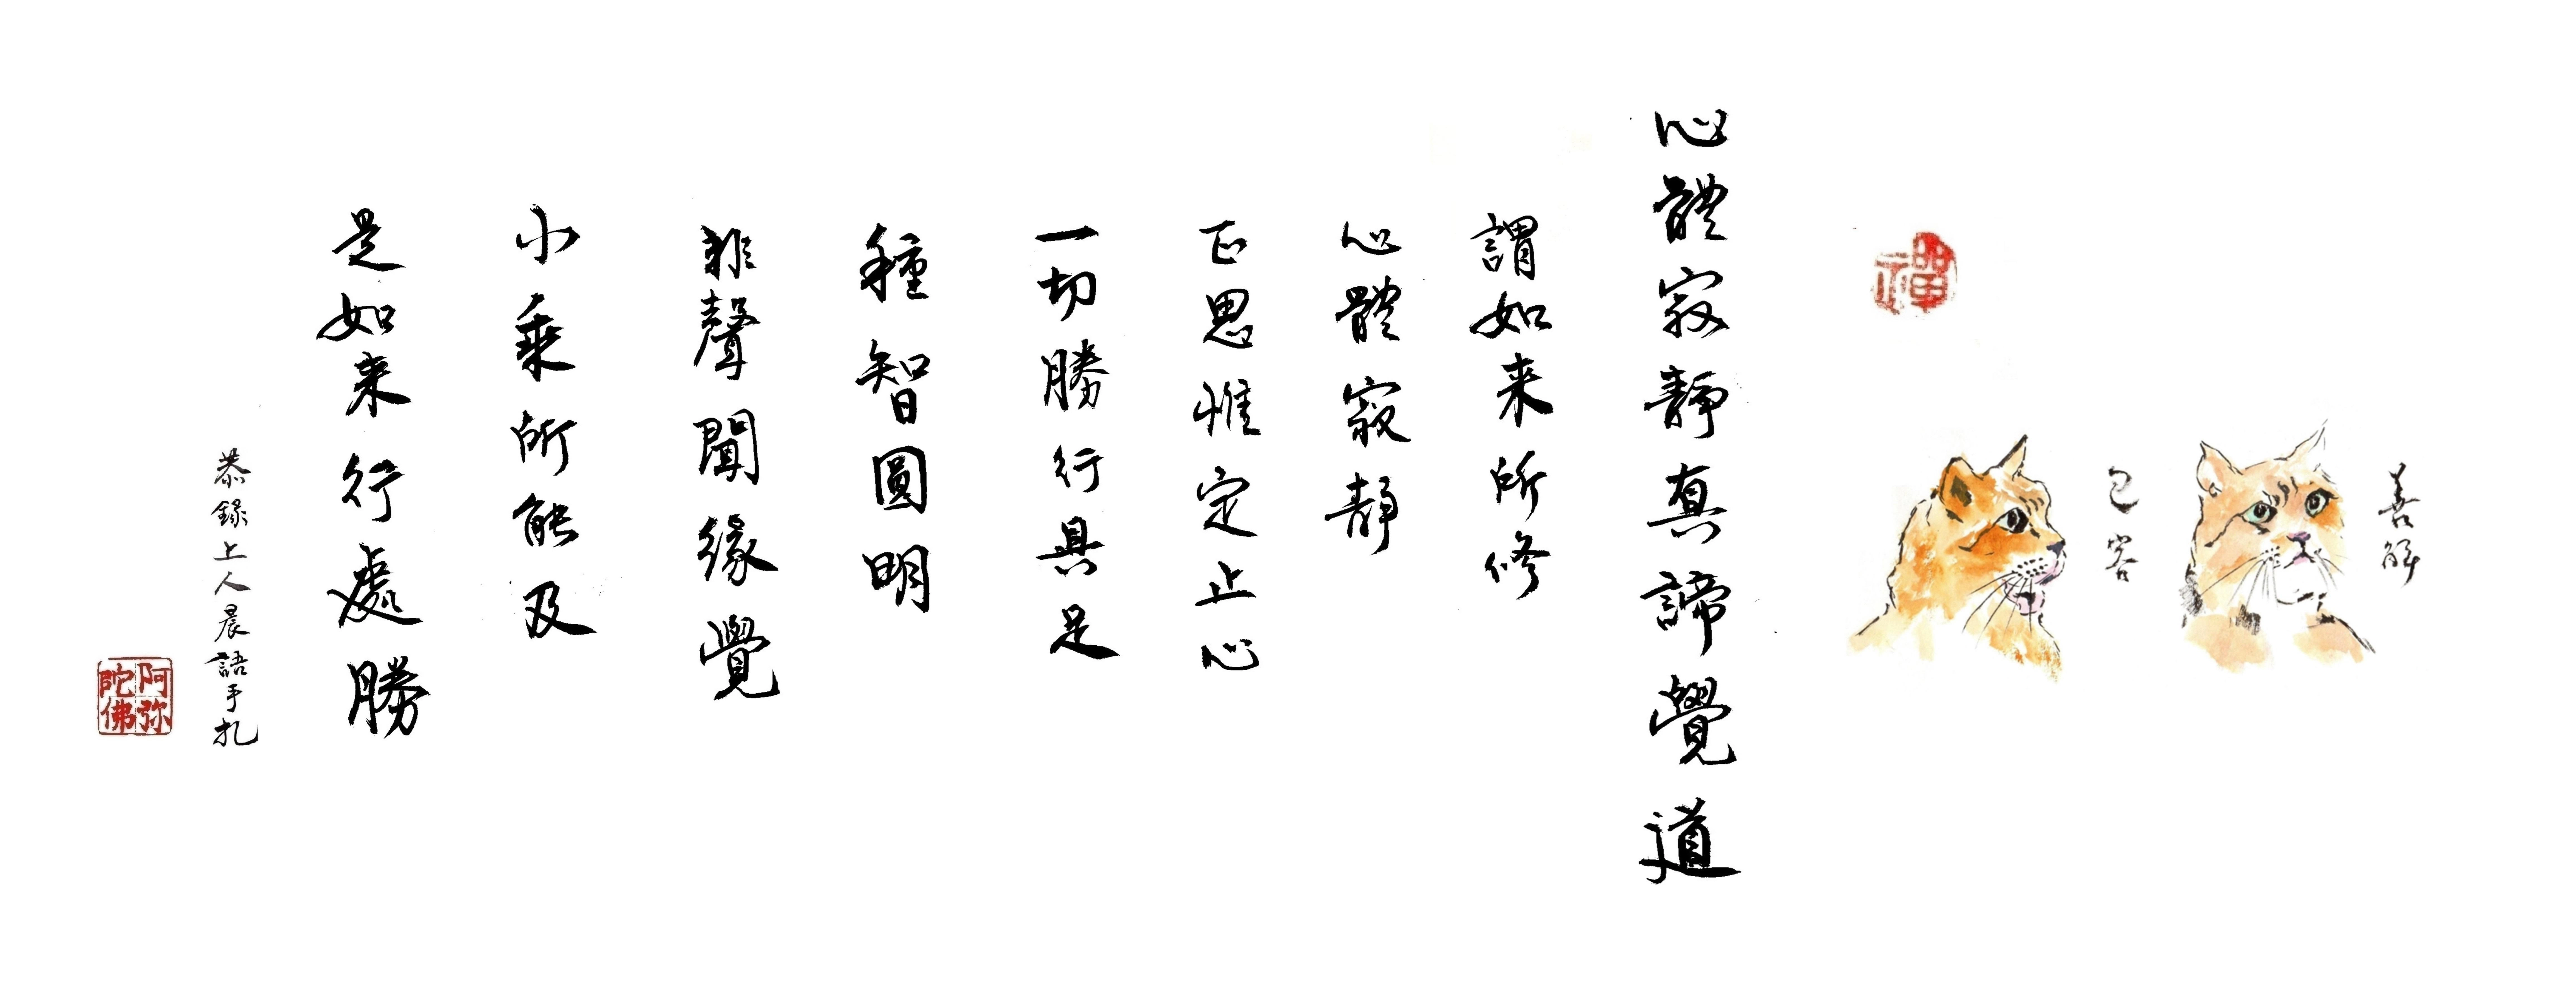 善解
包容
禪
心體寂靜真諦覺道
謂如来所修
心體寂靜
正思惟定止心
一切勝行具足
種智圓明
非聲聞緣覺
小乘所能及
是如来行處勝
恭錄上人晨語手札
阿弥
陀佛